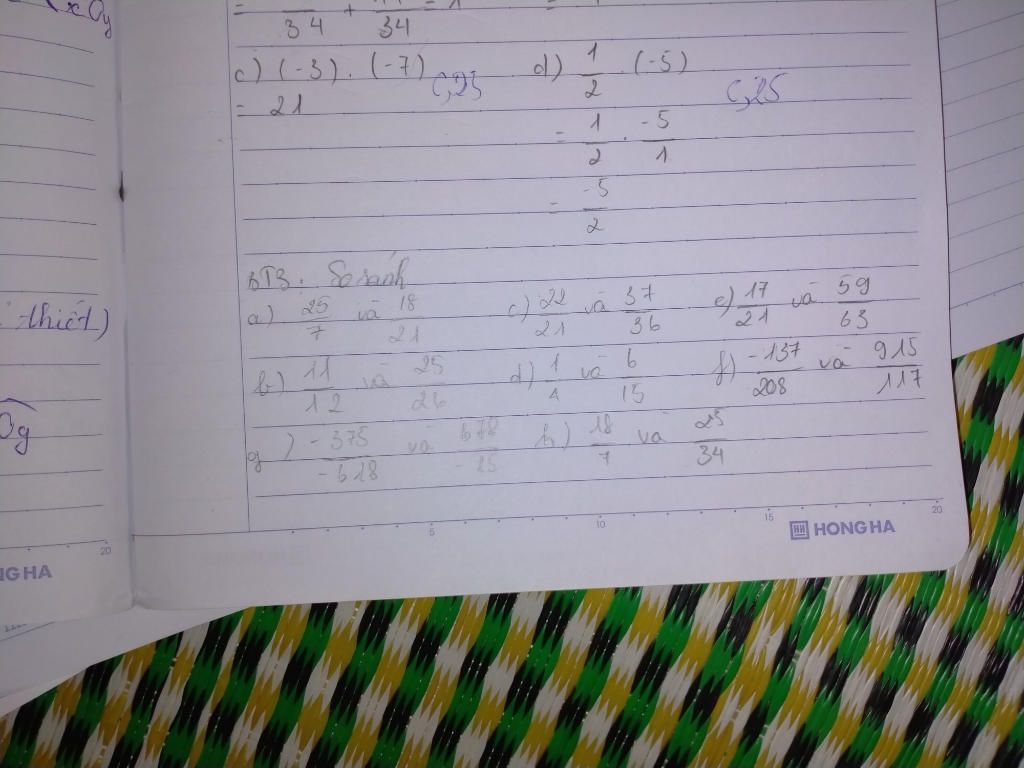 x Oy
= 34 + 34 = 1
c) (-3) . (-7)
0,25
d) 1/2 . (-5)
0,25
= 21
= 1/2 . -5/1
= -5/2
BT3. So sánh
a) 25/7 và 18/21 c) 22/21 và 37/36 e) 17/21 và 59/63
b) 11/12 và 25/26 d) 1/4 và 6/15 f) -137/208 và 915/117
g) -375/-618 và 678/-25 h) 18/7 và 25/34
thiết)
Oy
5 10 15 20
HONG HA
20
NG HA